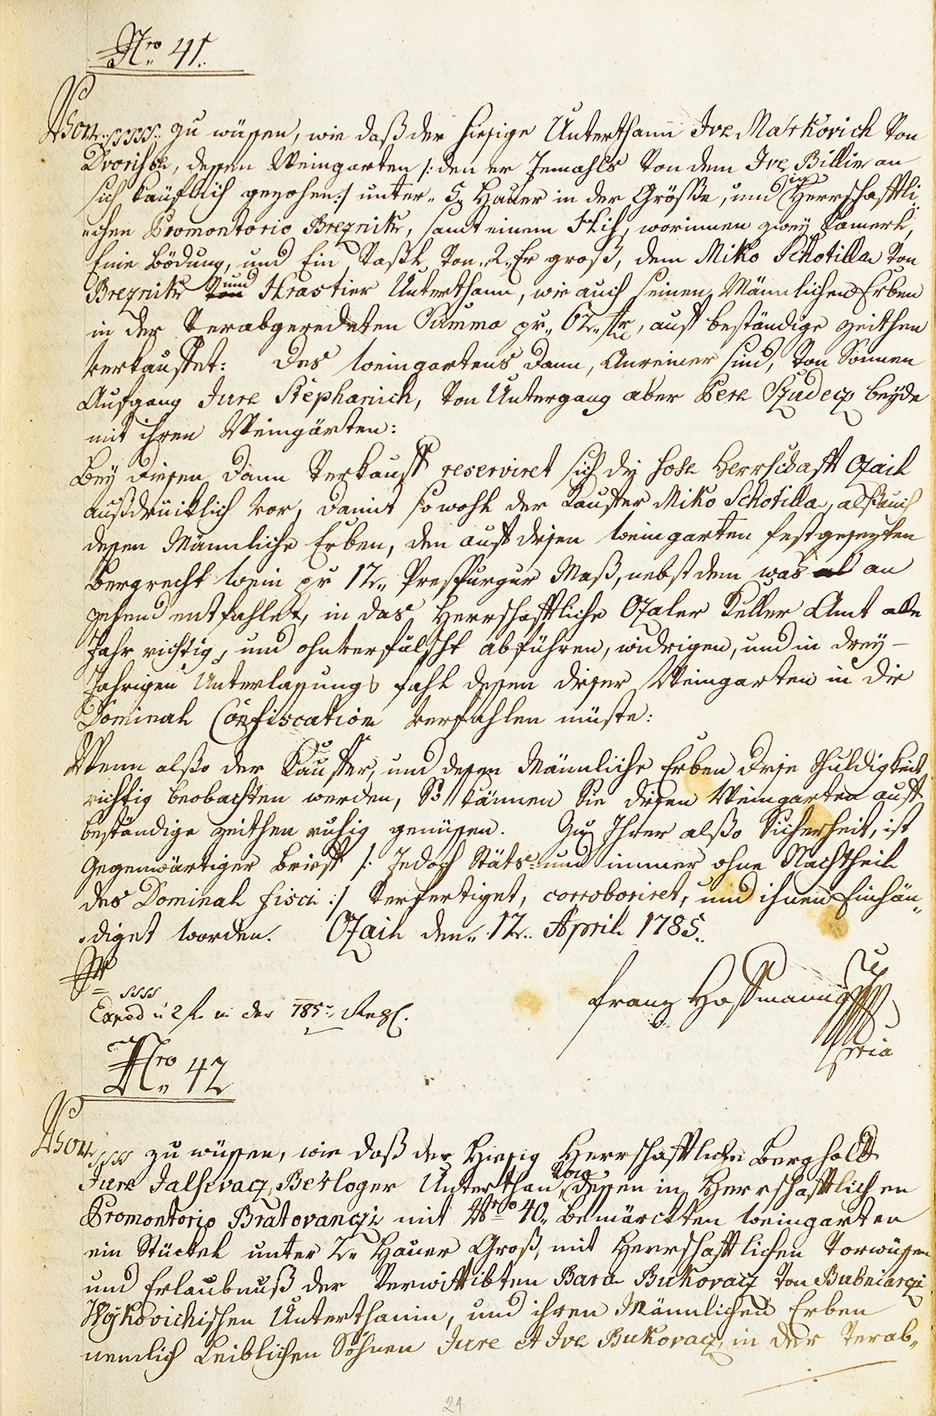 Nro 41.
Von zu wüssen, wie daß der hiesige Unterthann Ive Markovich Von
Dvorische, dessen Weingarten /: den er Jemahls Von dem Ive Billin an
sich käuflich gezohen :/ unter 5 Hauer in der Größe, und in Herrschaftli,
„chen Promontorio Breznik, samt einem Hisch, worinnen zwey Kamerl,
Eine Bödung, und Ein Vaßl Von 2 Er groß, dem Miko Schotilla Von
Breznik und Hrastier Unterthann, wie auch seinen Männlichen Erben
in der Verabgeredeten Summa pr 62 fr, auf beständige Zeithen
Verkauffet: Des Weingartens dann, Anreiner sind, Von Sonnen
Aufgang Jure Stephanich, Von Untergang aber Pere Czudecz beyde
mit ihren Weingärten:
Bey diesen dann Verkauff reserviret sich die hohe Herrschaft Ozail
außdrücklich vor, damit sowohl der Kauffer Miko Schotilla, alß auch
dessen Männliche Erben, den auf diesen Weingarten festgesezten
Bergrecht Wein pr 12 Presburgur Maß, nebst dem was an
zehend entfahlet, in das Herrschaftliche Ozaler Keller Amt alle
Jahr richtig, und ohnverfälscht abführen, widrigen, und in drey-
Jahrigen Unterlasungs fahl dessen dieser Weingarten in die
Dominal Confiscation Verfahlen müste:
Wenn alßo der Kauffer, und dessen Männliche Erben diese Schuldigkeit
richtig beobachten werden, So können Sie diesen Weingarten auf
beständige Zeithen ruhig genüssen. Zu Ihrer alßo Sicherheit, ist
Gegenwärtiger Brieff /: Jedoch Stäts und immer ohne Nachtheil
des Dominal fisci :/ Verfertiget, corroboriret, und ihnen Einhän„
„diget worden. Ozail den 12. April 1785.
Exped à 2 f. in der 785 Regl.
Franz Hoffmann
Nro 42
Von zu wüssen, wie daß der Hiesig Herrschaftliche Bergholdt
Jure Jalsevacz Berloger Unterthan Von dessen in Herrschaftlichen
Promontorio Bratovanczi mit Nro 40 bemärckten Weingarten
ein Stückel unter 2 Hauer Groß, mit Herrschaftlichen Vorwüssen
und Erlaubnuß der Verwittibten Bara Bukovacz Von Bubniarczi
Unterthanin, und ihren Männlichen Erben
nemlich Leiblichen Söhnen Jure et Ive Bukovacz, in der Verab„
21